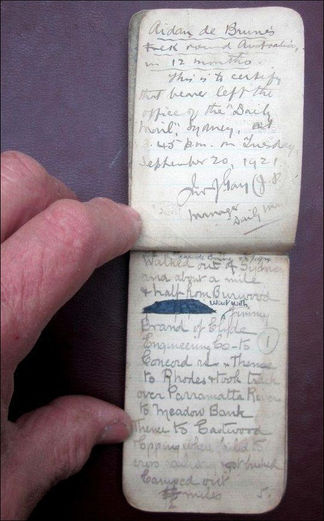 Aidan de Brune's
trek round Australia,
in 12 months.
This is to certify
that bearer left the
office of the "Daily
Mail", Sydney, at
.45 p.m. on Tuesday
September 20, 1921.
Manager
Daily Mail
Walked out of Sydney
and about a mile
& half from Burwood
went with
Jimmy
Brand of Clyde
Engineering Co - to
Concord rd & Thence
to Rhodes & took track
over Parramatta River
to Meadow Bank
Thence to Eastwood
Epping when failed to
cross railway got bushed
Camped out
miles 5.
1